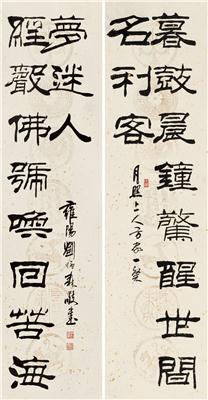 暮鼓晨鐘驚醒世間
名利客
月照上人方家一粲
經聲佛號喚回苦海
夢迷人
雍陽劉炳森敬書